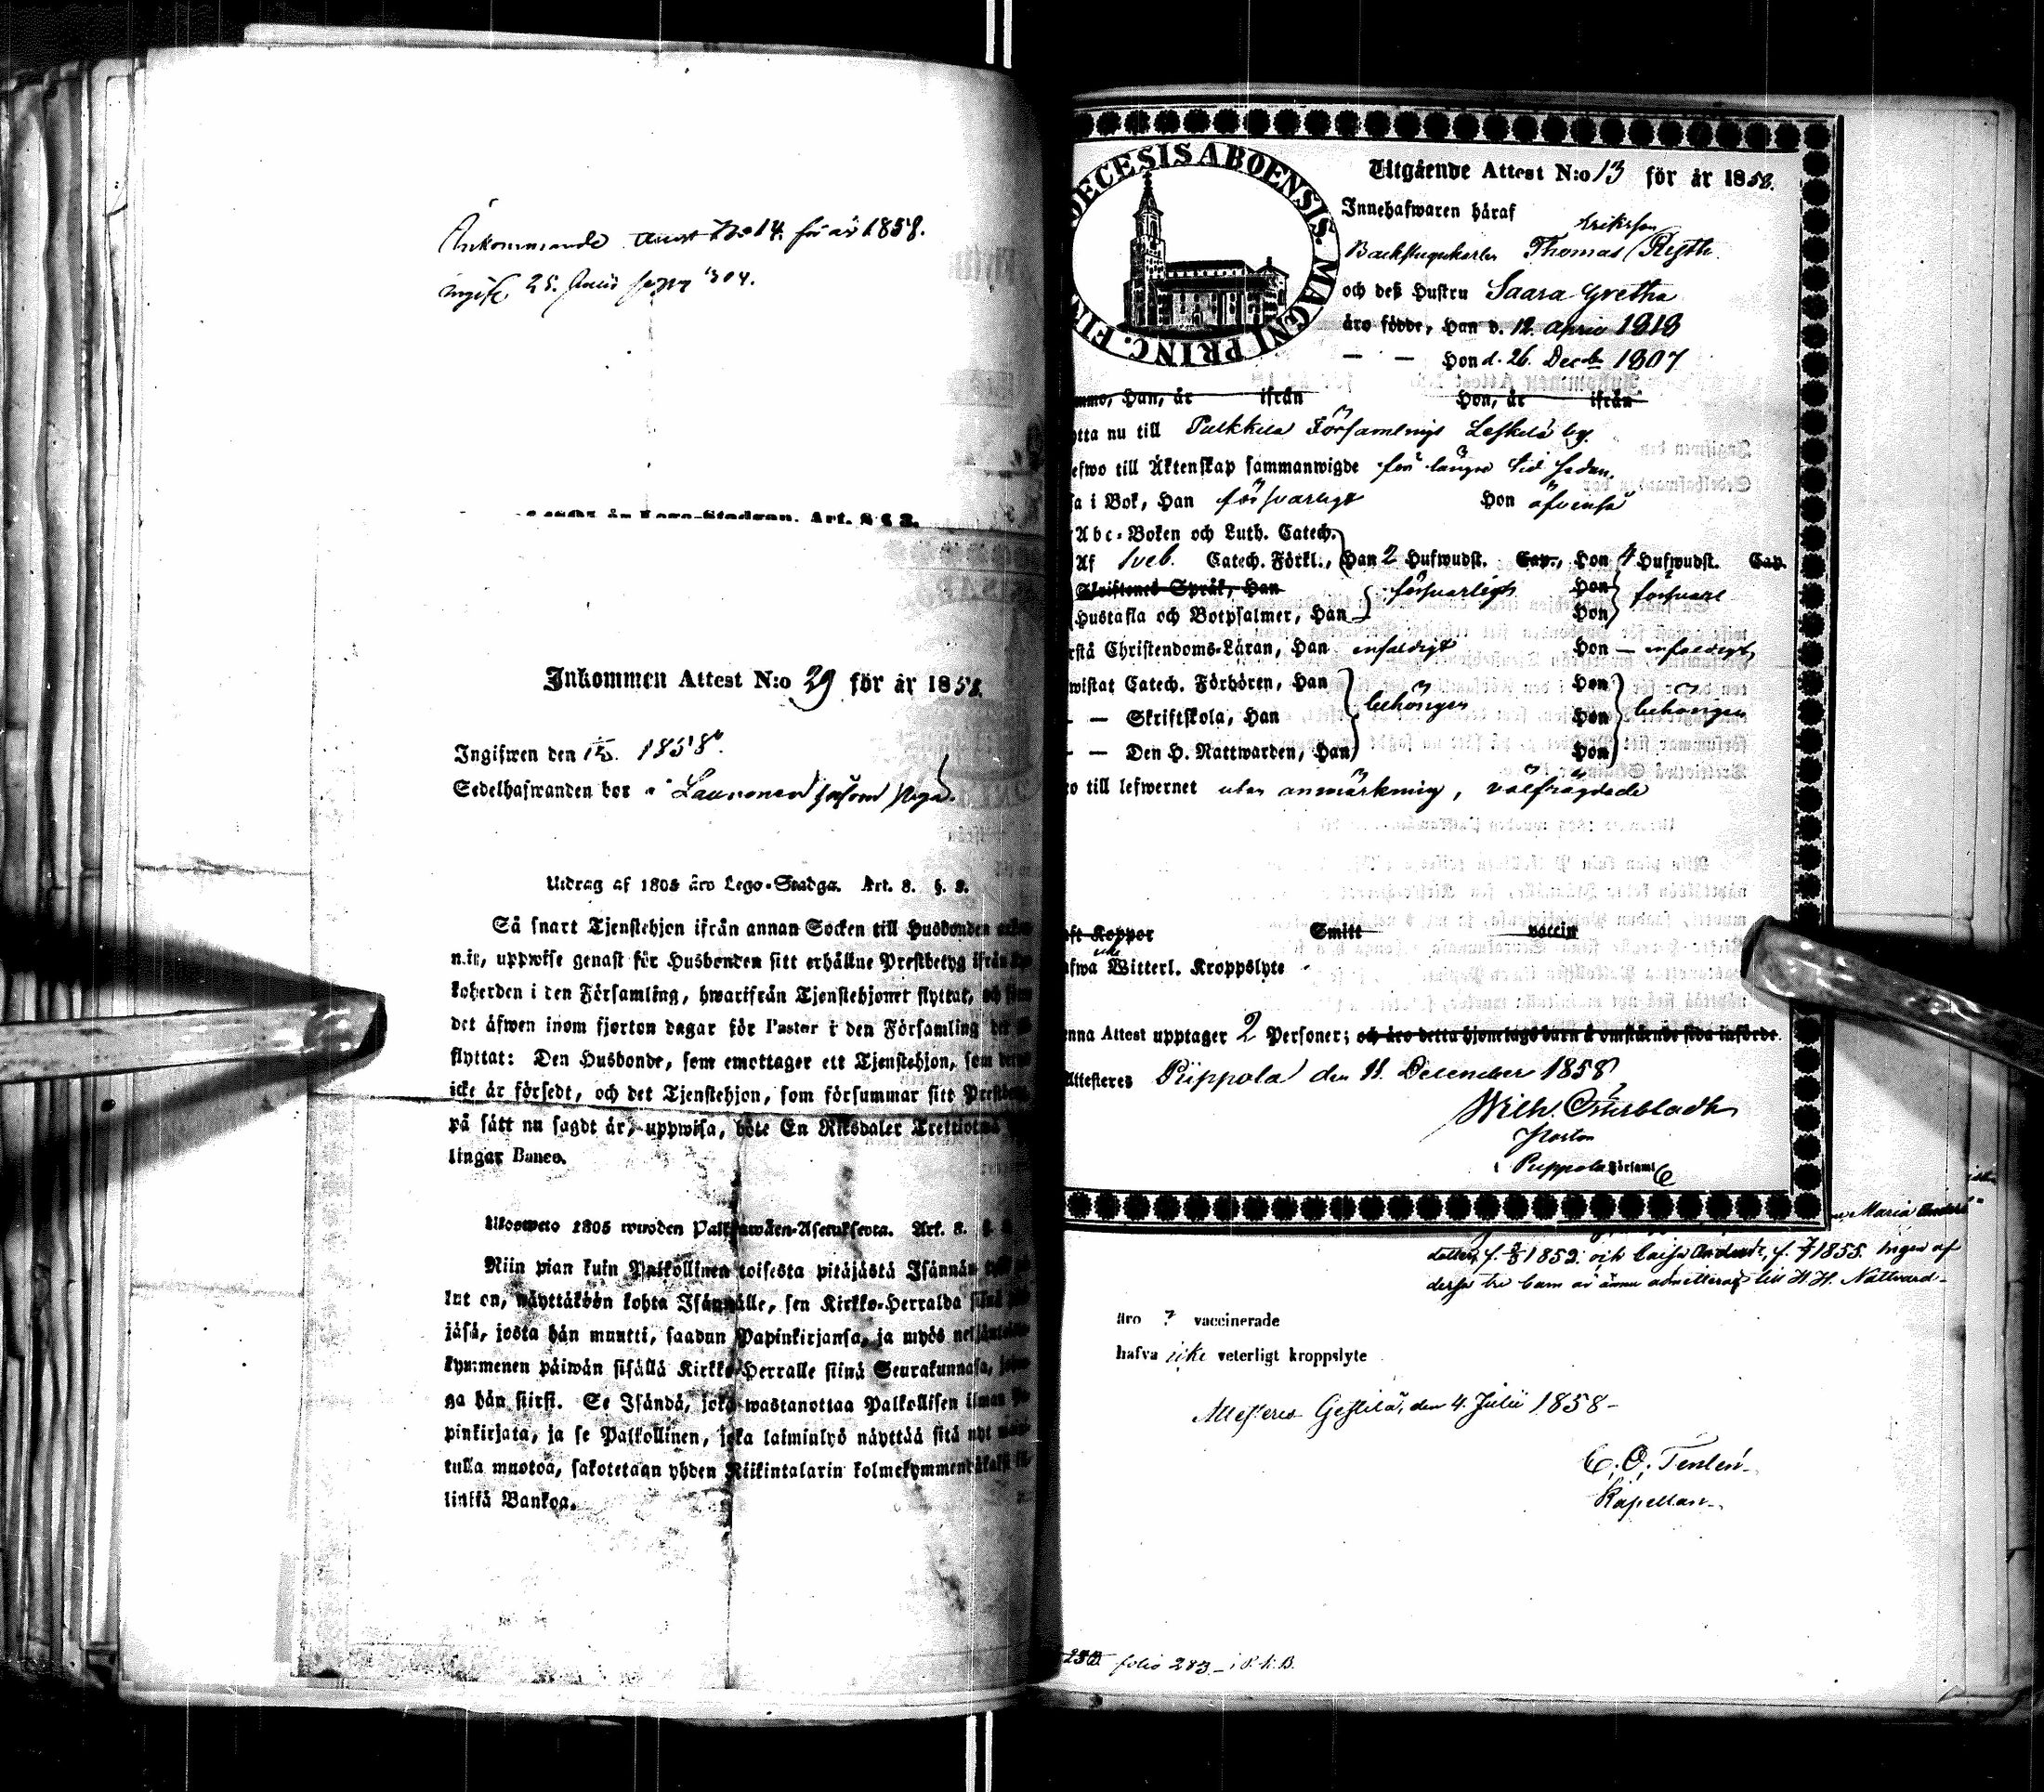 Ankommande Attest No 14. för år 1858.
304.
Art. 8 § 3.
Inkommen Attest N:o 29 för år 1858.
Ingifwen den 1858.
Sedelhafwanden bor i Launonen såsom piga.
Utdrag af 1805 års Lego-Stadga. Art. 8. §. 3.
Så snart Tjenstehjon ifrån annan Socken till Husbonden
mit, uppwise genast för Husbonden sitt erhållne Prestbetyg ifrån
koherden i den Församling, hwarifrån Tjenstehjonet flyttat, och
det äfwen inom fjorton dagar för Pastor i den Församling
flyttat: Den Husbonde, som emottager ett Tjenstehjon, som
icke är försedt, och det Tjenstehjon, som försummar sitt
på sätt nu sagdt är, uppwisa, böte En Riksdaler
lingar Banco.
Ulosweto 1805 wuoden Palkkawäen-Asetuksesta. Art. 8. §.
Niin pian kuin Palkollinen toisesta pitäjästä Isännän
lut on, näyttäköön kohta Isännälle, sen Kirkko-Herralda siinä
jäsä, josta hän muutti, saadun Papinkirjansa, ja myös
kymmenen päiwän sisällä Kirkko-Herralle siinä Seurakunnasa,
ga hän siirsi. Se Isändä, joka wastanottaa Palkollisen ilman
pinkirjata, ja se Palkollinen, joka laiminlyö näyttää sitä nyt
tulla muotoa, sakotetaan yhden Riikintalarin
linkiä Bankoa.
DIŒCESIS ABOENSIS. MAGNI PRINC. FIN
Utgående Attest N:o 13 för år 1858.
Innehafwaren häraf
Eriksson
Backstugukarlen Thomas Rysth
och deß Hustru Saara Gretha
äro födde, Han d. 12 April 1818
— — Hon d. 26 Decbr 1807
Han, år ifrån Hon, år ifrån
nu till Pulkkila Församlings Leskelä by.
till Äktenskap sammanwigde för längre tid sedan.
i Bok, Han försvarligt Hon äfvenså
Abc-Boken och Luth. Catech.
Af Sveb. Catech. Förkl., Han 2 Hufwudst. Cap., Hon 4 Hufwudst. Cap.
Skriftenes Språk, Han försvarligt Hon försvarl
Hustafla och Botpsalmer, Han Hon
Christendoms-Läran, Han enfaldigt Hon — enfaldigt
Catech. Förhören, Han behörigen Hon behörigen
— — Skriftskola, Han Hon
— — Den H. Nattwarden, Han Hon
till lefwernet utan anmärkning, välfrägdade
Koppor Smitt vaccin
icke
Witterl. Kroppslyte
Attest upptager 2 Personer; och äro detta hjonelags barn å omstående sida införde.
Attesteres Piippola den 11. December 1858
Wilh. Österbladh
Pastor
i Piippola Församl
Maria Anders
dotter, f. 1852. och Caisa f. 1855. Ingen af
dessa tre barn är ännu admitterad till H. H. Nattvard.
äro ? vaccinerade
hafva icke veterligt kroppslyte
Attesteres Gestilä, den 4. Julii 1858
C. O. Tenlén
Kapellan
folio 283 — i R.K.B.